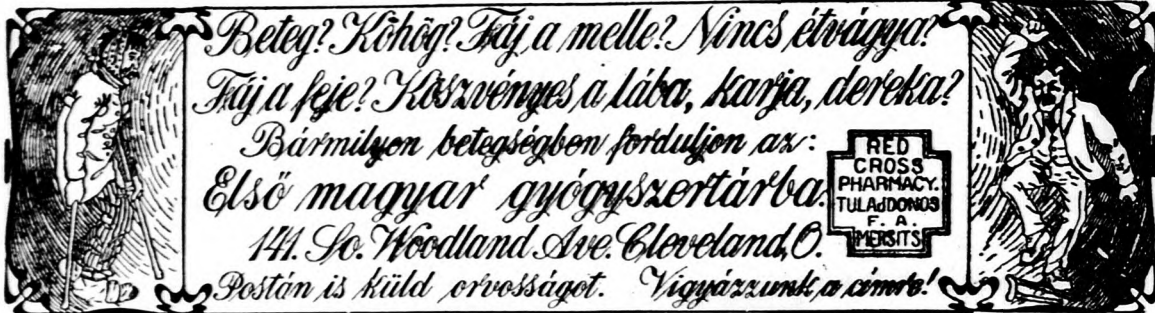 Beteg? Köhög? Fáj a melle? Nincs étvágya?
Fáj a feje? Köszvényes a lába, karja, dereka?
Bármilyen betegségben forduljon az:
Első magyar gyógyszertárba.
141. So. Woodland Ave. Cleveland, O.
Postán is küld orvosságot. Vigyázzunk a cimre!
RED
CROSS
PHARMACY.
TULAJDONOS
F. A.
MERSITS